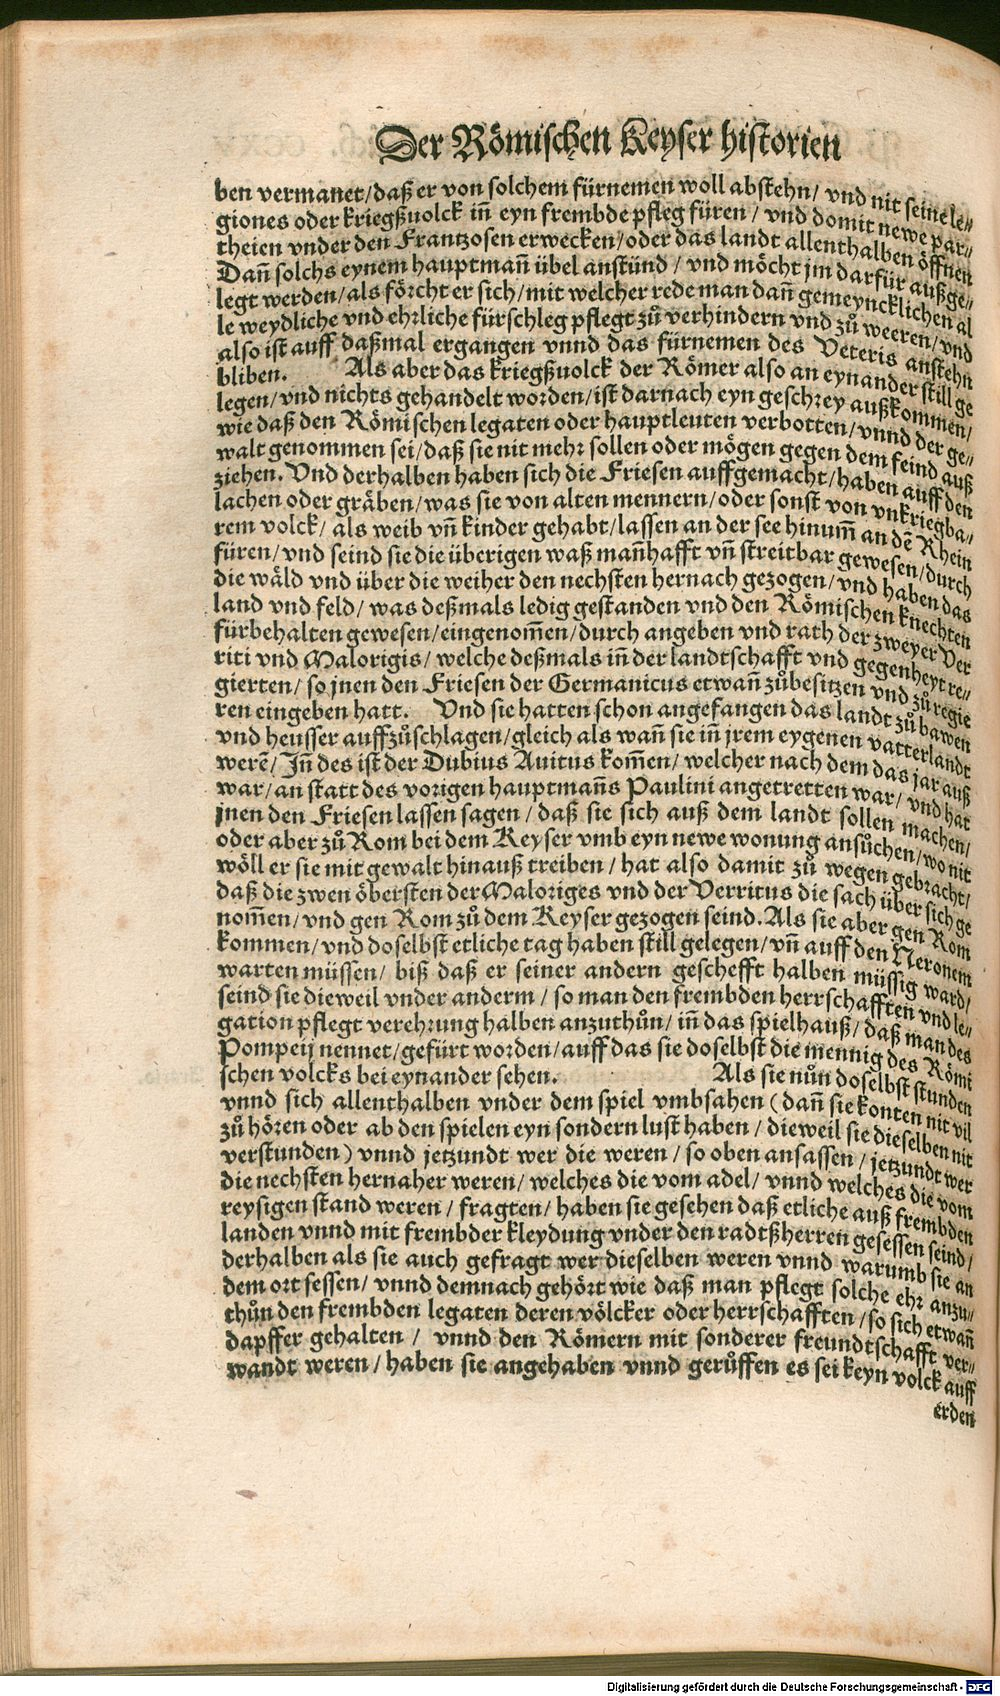 Der Römischen Keyser historien
ben vermanet/daß er von solchem fürnemen woll abstehn/ vnd nit seine le⸗
giones oder kriegßuolck iñ eyn frembde pfleg füren / vnd domit newe par⸗
theien vnder den Frantzosen erwecken/oder das landt allenthalben öffnen
Dañ solchs eynem hauptmañ übel anstünd / vnd möcht jm darfür außge⸗
legt werden/als förcht er sich/mit welcher rede man dañ gemeyncklichen al
le weydliche vnd ehrliche fürschleg pflegt zů verhindern vnd zů weeren/vnd
also ist auff daßmal ergangen vnnd das fürnemen des Veteris anstehn
bliben. Als aber das kriegßuolck der Römer also an eynander still ge
legen/vnd nichts gehandelt worden/ist darnach eyn geschrey außkommen/
wie daß den Römischen legaten oder hauptleuten verbotten/vnnd der ge⸗
walt genommen sei/daß sie nit mehr sollen oder mögen gegen dem feind auß
ziehen. Vnd derhalben haben sich die Friesen auffgemacht/haben auff den
lachen oder gräben/was sie von alten mennern/oder sonst von vnkriegba⸗
rem volck/ als weib vñ kinder gehabt/lassen an der see hinum̃ an dẽ Rhein
füren/vnd seind sie die überigen waß mañhafft vñ streitbar gewesen/durch
die wäld vnd über die weiher den nechsten hernach gezogen/vnd haben das
land vnd feld/was deßmals ledig gestanden vnd den Römischen knechten
fürbehalten gewesen/eingenom̃en/durch angeben vnd rath der zweyer Ver
riti vnd Malorigis/welche deßmals iñ der landtschafft vnd gegenheyt re⸗
gierten/so jnen den Friesen der Germanicus etwañ zůbesitzen vnd zů regie
ren eingeben hatt. Vnd sie hatten schon angefangen das landt zů bawen
vnd heusser auffzůschlagen/gleich als wañ sie iñ jrem eygenen vatterlandt
werẽ/Jñ des ist der Dubius Auitus kom̃en/welcher nach dem das jar auß
war/an statt des vorigen hauptmañs Paulini angetretten war/ vnd hat
jnen den Friesen lassen sagen / daß sie sich auß dem landt sollen machen/
oder aber zů Rom bei dem Keyser vmb eyn newe wonung ansůchen/wo nit
wöll er sie mit gewalt hinauß treiben / hat also damit zů wegen gebracht/
daß die zwen öbersten der Maloriges vnd der Verritus die sach über sich ge
nom̃en/vnd gen Rom zů dem Keyser gezogen seind. Als sie aber gen Rom
kommen/vnd doselbst etliche tag haben still gelegen/vñ auff den Neronem
warten müssen/ biß daß er seiner andern geschefft halben müssig ward/
seind sie dieweil vnder anderm / so man den frembden herrschafften vnd le⸗
gation pflegt verehrung halben anzuthůn/ iñ das spielhauß/ daß man des
Pompeij nennet/gefürt worden/auff das sie doselbst die mennig des Römi
schen volcks bei eynander sehen. Als sie nůn doselbst stunden
vnnd sich allenthalben vnder dem spiel vmbsahen (dañ sie konten nit vil
zů hören oder ab den spielen eyn sondern lust haben / dieweil sie dieselben nit
verstunden) vnnd jetzundt wer die weren / so oben ansassen / jetzundt wer
die nechsten hernaher weren/ welches die vom adel/ vnnd welches die vom
reysigen stand weren / fragten/ haben sie gesehen daß etliche auß frembden
landen vnnd mit frembder kleydung vnder den radtßherren gesessen seind/
derhalben als sie auch gefragt wer dieselben weren vnnd warumb sie an
dem ort sessen/ vnnd demnach gehört wie daß man pflegt solche ehr anzu⸗
thůn den frembden legaten deren völcker oder herrschafften / so sich etwañ
dapffer gehalten / vnnd den Römern mit sonderer freundtschafft ver⸗
wandt weren / haben sie angehaben vnnd gerůffen es sei keyn volck auff
erden
Digitalisierung gefördert durch die Deutsche Forschungsgemeinschaft - DFG